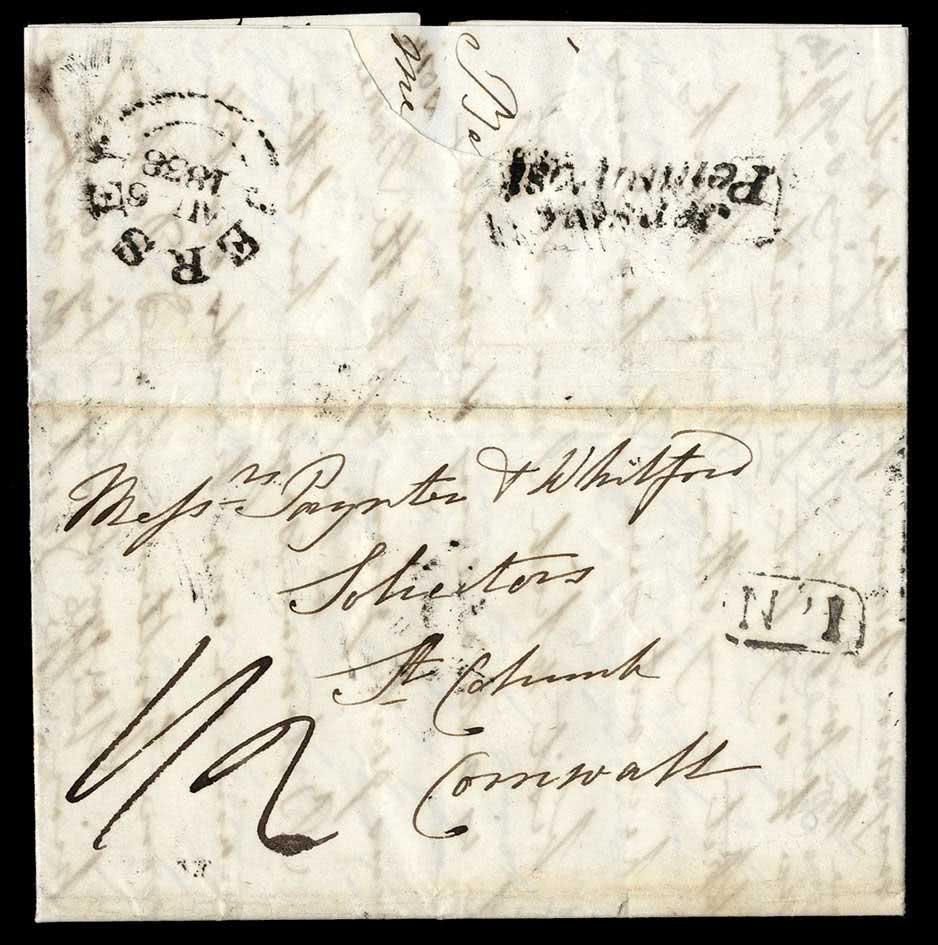 JERSEY
AU 6
1838
Penny Post
Messrs Paynter & Whitford
Solicitors
St Columb
Cornwall
1/2
No. 1